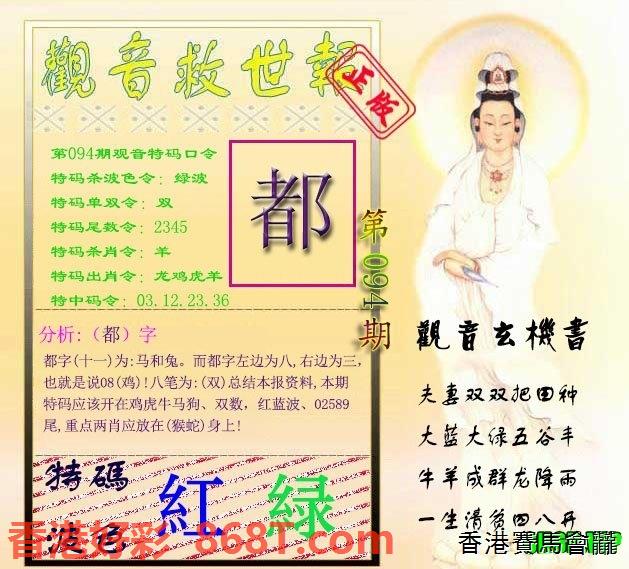 觀音救世報
正版
第094期观音特码口令
特码杀波色令：绿波
特码单双令：双
特码尾数令：2345
特码杀肖令：羊
特码出肖令：龙鸡虎羊
特中码令：03.12.23.36
都
第094期
分析：（都）字
都字(十一)为:马和兔。而都字左边为八,右边为三,
也就是说08(鸡)!八笔为:(双)总结本报资料,本期
特码应该开在鸡虎牛马狗、双数，红蓝波、02589
尾,重点两肖应放在(猴蛇)身上!
特碼
波色
紅
绿
觀音玄機書
夫妻双双把田种
大蓝大绿五谷丰
牛羊成群龙降雨
一生清贫四八开
香港好彩 868T.com
香港賽馬會